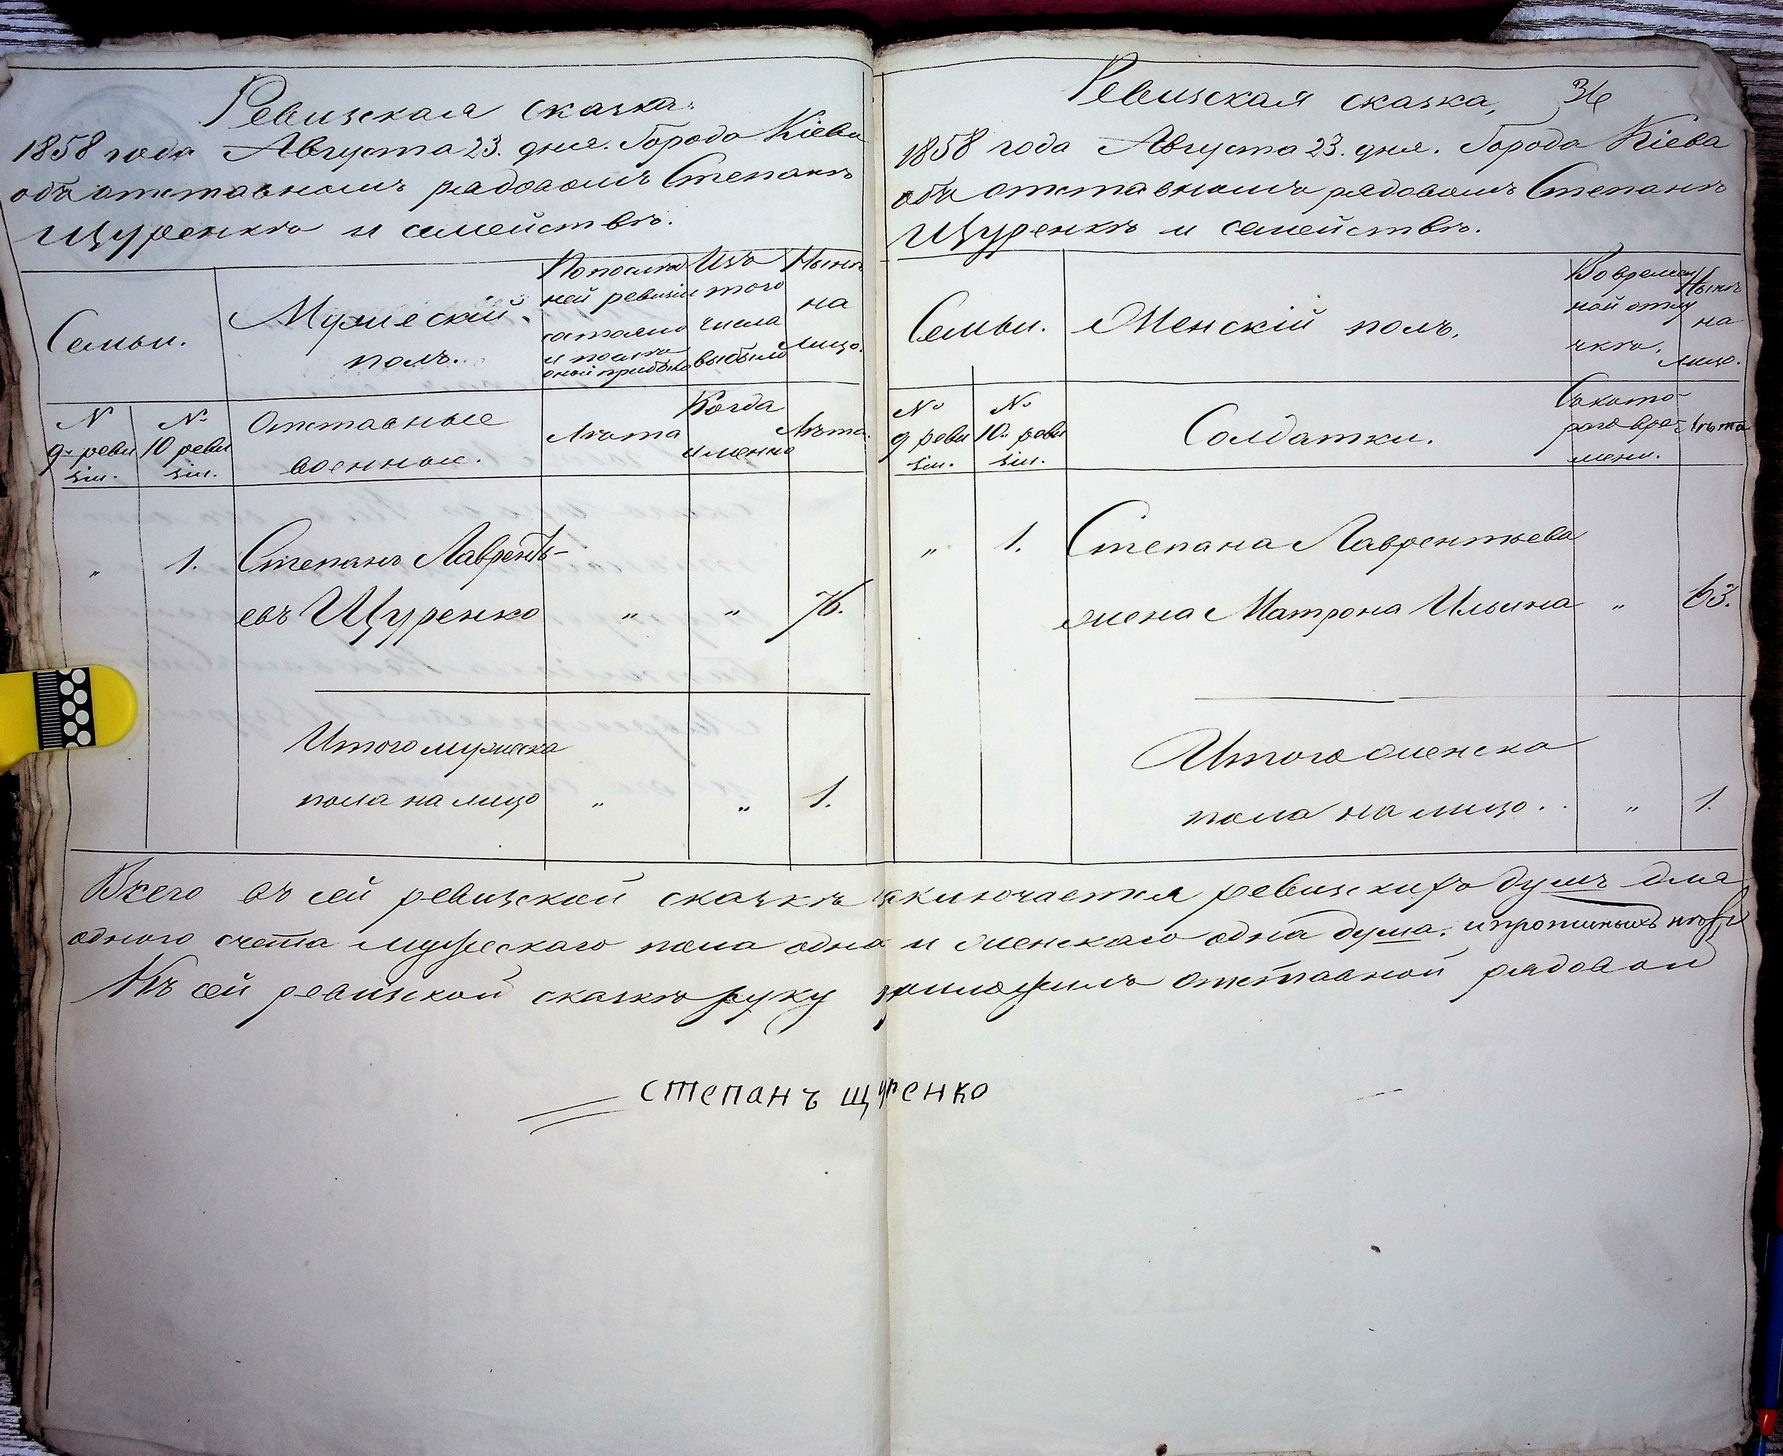 Ревизская сказка.
1858 года Августа 23. дня. Города Кіева
объ отставномъ рядовомъ Степанѣ
Щуренкѣ и семействѣ.
Семьи.
Мужескій
полъ.
По послѣд
ней ревизіи
состояло
и послѣ
оной прибыло
Изъ
того
числа
выбыло
Нынѣ
на
лицо.
№
9й реви
зіи.
№
10 реви
зіи.
Отставные
военные.
Лѣта
Когда
именно
Лѣта.
„ 1. Степанъ Лавренть-
евъ Щуренко „ „ 76.
Итого мужеска
пола на лицо „ „ 1.
Ревизская сказка, 36
1858 года Августа 23. дня. Города Кіева
объ отставномъ рядовомъ Степанѣ
Щуренкѣ и семействѣ.
Семьи.
Женскій полъ.
Во времен
ной отлу
чкѣ.
Нынѣ
на
лицо.
№
9 реви
зіи.
№
10й реви
зіи.
Солдатки.
Съ кото-
раго вре-
мени.
Лѣта
„ 1. Степана Лаврентьева
жена Матрона Ильина „ 63.
Итого женска
пола на лицо. „ 1.
Всего въ сей ревизской сказкѣ заключается ревизскихъ душъ для
одного счета мужескаго пола одна и женскаго одна душа.
Къ сей ревизской сказкѣ руку приложилъ отставной рядовой
степанъ щуренко